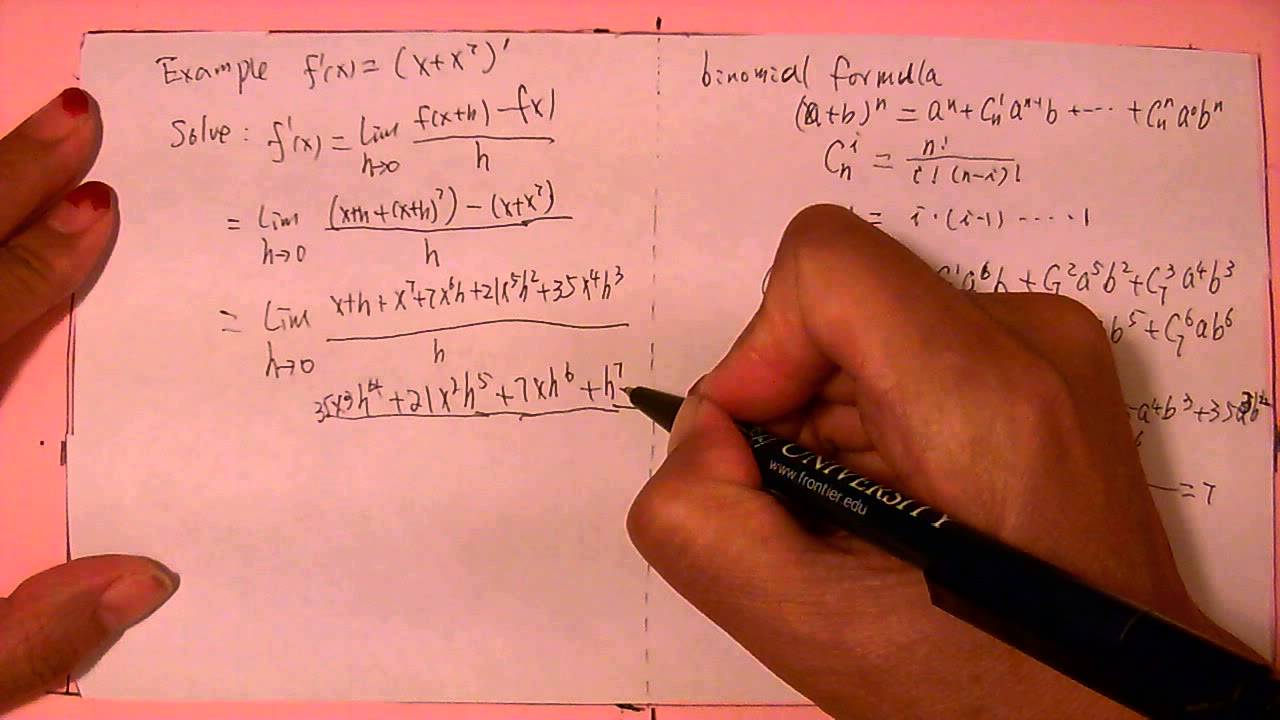 Example f'(x) = (x+x⁷)'
Solve: f'(x) = lim h→0 f(x+h) - f(x) / h
= lim h→0 (x+h+(x+h)⁷) - (x+x⁷) / h
= lim h→0 x+h+x⁷+7x⁶h+21x⁵h²+35x⁴h³ / h
35x³h⁴+21x²h⁵+7xh⁶+h⁷
binomial formula
(a+b)ⁿ = aⁿ+Cₙ¹aⁿ⁻¹b+----+Cₙⁿa⁰bⁿ
Cₙⁱ = n! / i!(n-i)!
= i·(i-1)-----1
¹a⁶b + C₇²a⁵b²+C₇³a⁴b³
b⁵+C₇⁶ab⁶
a⁴b³+35a³b⁴
= 7
UNIVERSITY
www.frontier.edu